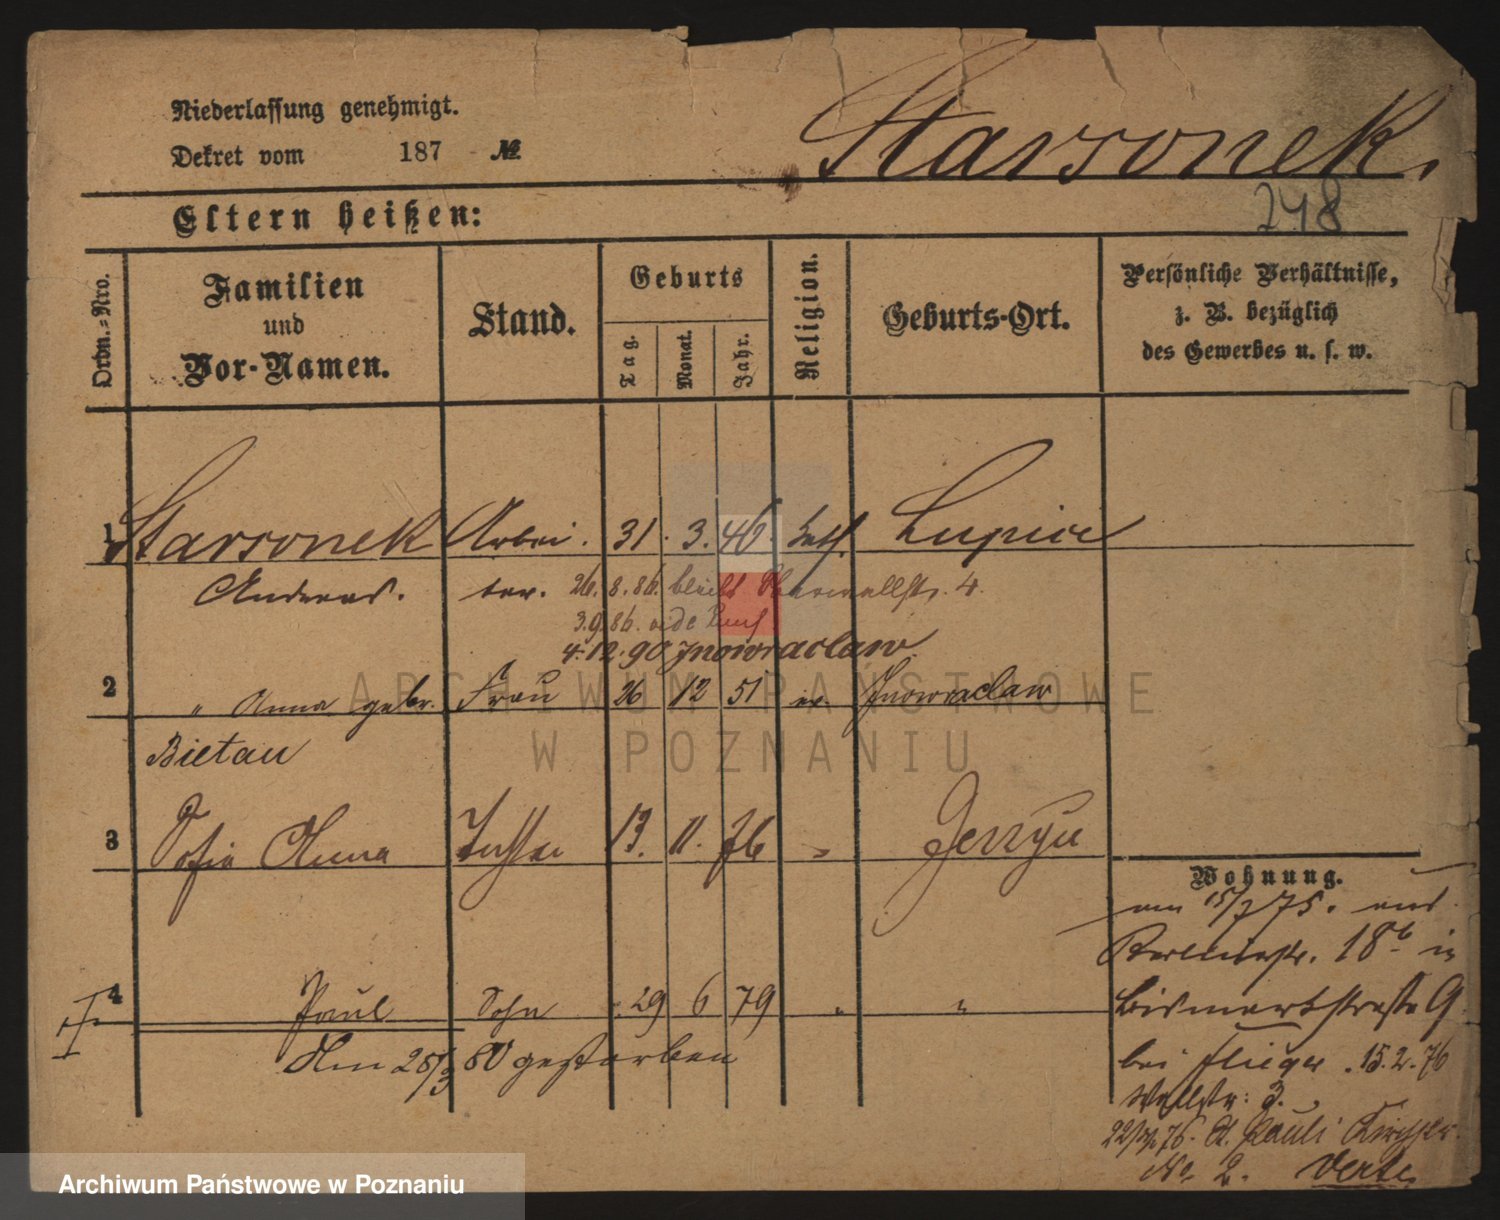 Niederlassung genehmigt.
Dekret vom 187 №
Starsonek.
248
Eltern heißen:
Ordn.-Nro.
Familien und Vor-Namen.
Stand.
Geburts
Tag.
Monat.
Jahr.
Religion.
Geburts-Ort.
Persönliche Verhältnisse,
z. B. bezüglich
des Gewerbes u. s. w.
1 Starsonek Arbei. 31. 3. 46. kath. Lupice
Andreas. ter. 26. 8. 86. bleibt 4.
3.9.86.
4.12.90 Inowraclaw.
2 " Anna gebr. Frau 26 12 51 ev. Inowraclaw
Bietau
3 Sofie Anna Tochter 13. 11. 76 "
4 Paul Sohn 29 6 79 " "
Am 25/3 80 gestorben
Wohnung.
am 15/7 75. aus
18b in
Bismarkstraße 9
bei Flieger. 15.2.76
Wallstr: 3.
St. Pauli Kirchstr.
No. 2. Verte.
ARCHIWUM PAŃSTWOWE
W POZNANIU
Archiwum Państwowe w Poznaniu